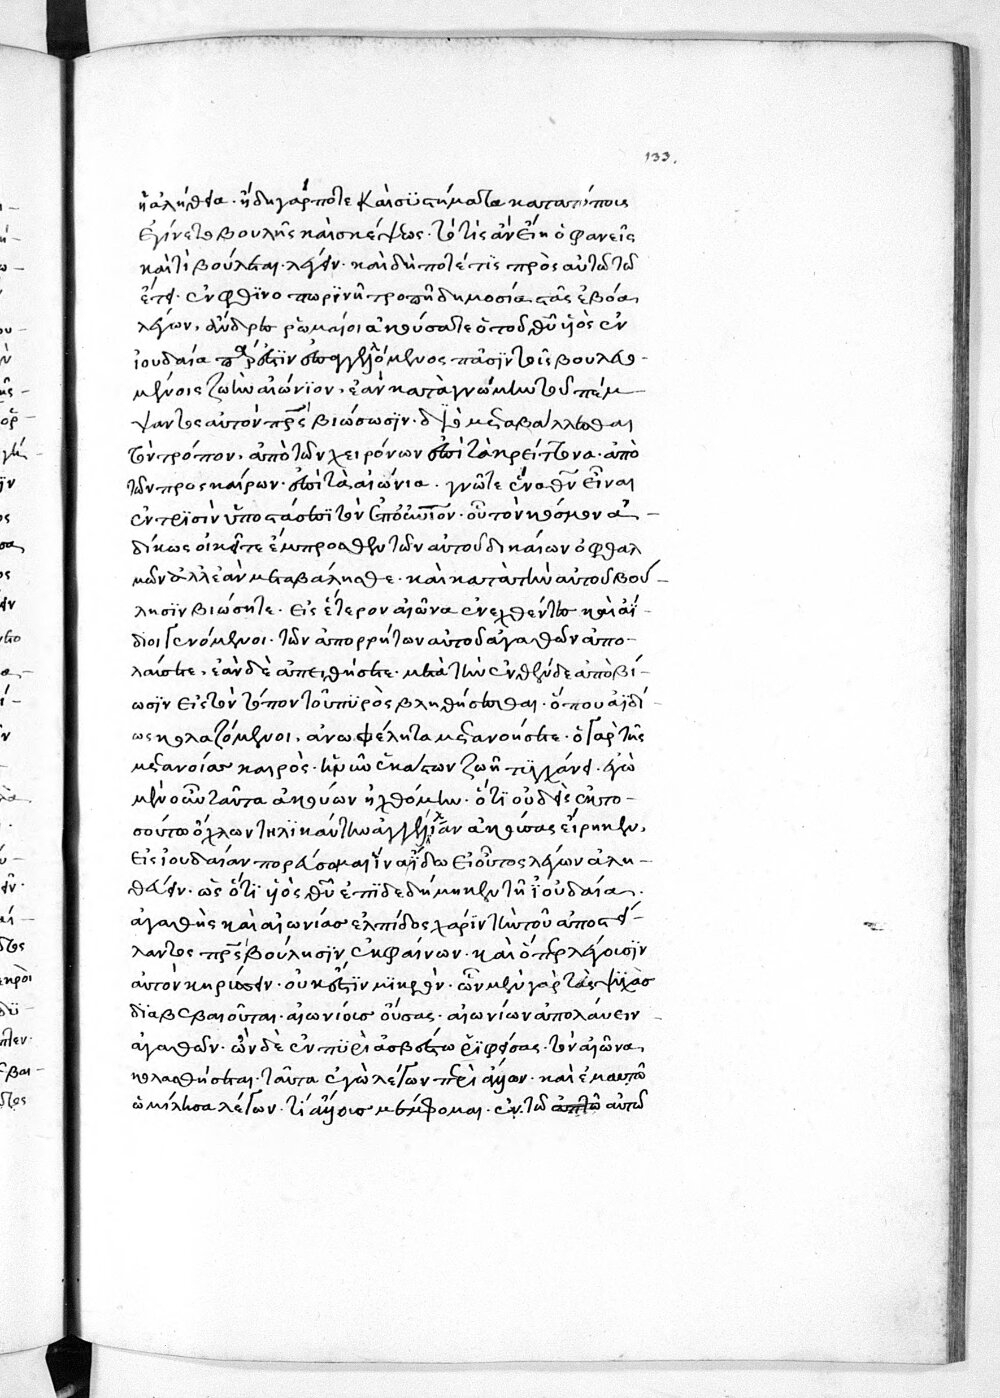 133.
ἡ ἀλήθεια· ἤδη γάρ ποτε καὶ συστήματα κατὰ τόπους
ἐγίνετο βουλῆς καὶ σκέψεως· τὸ τίς ἂν εἴη ὁ φανεὶς
καὶ τί βούλεται λέγειν· καὶ δή ποτέ τις πρὸς αὐτῷ τῷ
ἔτει ἐν φθινοπωρινῇ τροπῇ δημοσίᾳ στὰς ἐβόα
λέγων, ἄνδρες ῥωμαῖοι ἀκούσατε ὁ τοῦ θῦ υἱὸς ἐν
ἰουδαία πάρεστιν ἐπαγγελλόμενος πᾶσιν τοῖς βουλο-
μένοις ζωὴν αἰώνιον, ἐὰν κατὰ γνώμην τοῦ πέμ-
ψαντος αὐτὸν πρς βιώσωσιν· διὸ μεταβάλλεσθε
τὸν τρόπον, ἀπὸ τῶν χειρόνων ἐπὶ τὰ κρείττονα· ἀπὸ
τῶν προσκαίρων ἐπὶ τὰ αἰώνια· γνῶτε ἕνα θν εἶναι
ἐν τρισὶν ὑποστάσεσι τὸν ἐπουράνιον· οὗ τὸν κόσμον ἀ-
δίκως οἰκεῖτε ἔμπροσθεν τῶν αὐτοῦ δικαίων ὀφθαλ
μῶν ἀλλ' ἐὰν μεταβάλησθε· καὶ κατὰ τὴν αὐτοῦ βού-
λησιν βιώσητε· εἰς ἕτερον αἰῶνα ἐνεχθέντες καὶ ἀΐ-
διοι γενόμενοι· τῶν ἀπορρήτων αὐτοῦ ἀγαθῶν ἀπο-
λαύσετε, ἐὰν δὲ ἀπειθήσητε· μετὰ τὴν ἐνθένδε ἀποβί-
ωσιν εἰς τὸν τόπον τοῦ πυρὸς βληθήσεσθε· ὅπου ἀϊδί-
ως κολαζόμενοι, ἀνωφέλητα μετανοήσετε· ὁ γὰρ τῆς
μετανοίας καιρὸς· ἡ νῦν ἑκάστων ζωὴ τυγχάνει· ἐγὼ
μὲν οὖν ταῦτα ἀκούων ἠχθόμην· ὅτι οὐδεὶς ἐκ το-
σούτων ὄχλων τηλικαύτην ἀγγελίαν ἀκούσας εἴρηκεν,
εἰς ἰουδαίαν πορεύσομαι ἵνα ἴδω εἰ οὗτος λέγων ἀλη-
θεύει· ὡς ὅτι υἱὸς θῦ ἐπιδεδήμηκεν τῇ ἰουδαίᾳ·
ἀγαθῆς καὶ αἰωνίας ἐλπίδος χάριν τὴν τοῦ ἀποστεί-
λαντος πρς βούλησιν ἐκφαίνων· καὶ ὅπερ λέγουσιν
αὐτὸν κηρύσσειν· οὐκ ἔστιν μικρὸν· ὧν μὲν γὰρ τὰς ψυχὰς
διαβεβαιοῦται· αἰωνίους οὔσας· αἰωνίων ἀπολαύειν
ἀγαθῶν· ὧν δὲ ἐν πυρὶ ἀσβέστῳ ῥιφείσας· τὸν αἰῶνα
κολασθήσεται· ταῦτα ἐγὼ λέγων περὶ ἄλλων· καὶ ἐμαυτῷ
ὡμίλησα λέγων· τί ἄλλους μέμφομαι· ἐν τῷ αὐτῷ